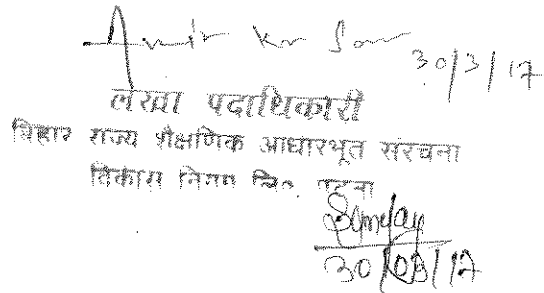 Amir Kr Sam 30/3/17
लेखा पदाधिकारी
बिहार राज्य शैक्षणिक आधारभूत संरचना
विकास निगम लि० पटना
Sanjay
30/03/17